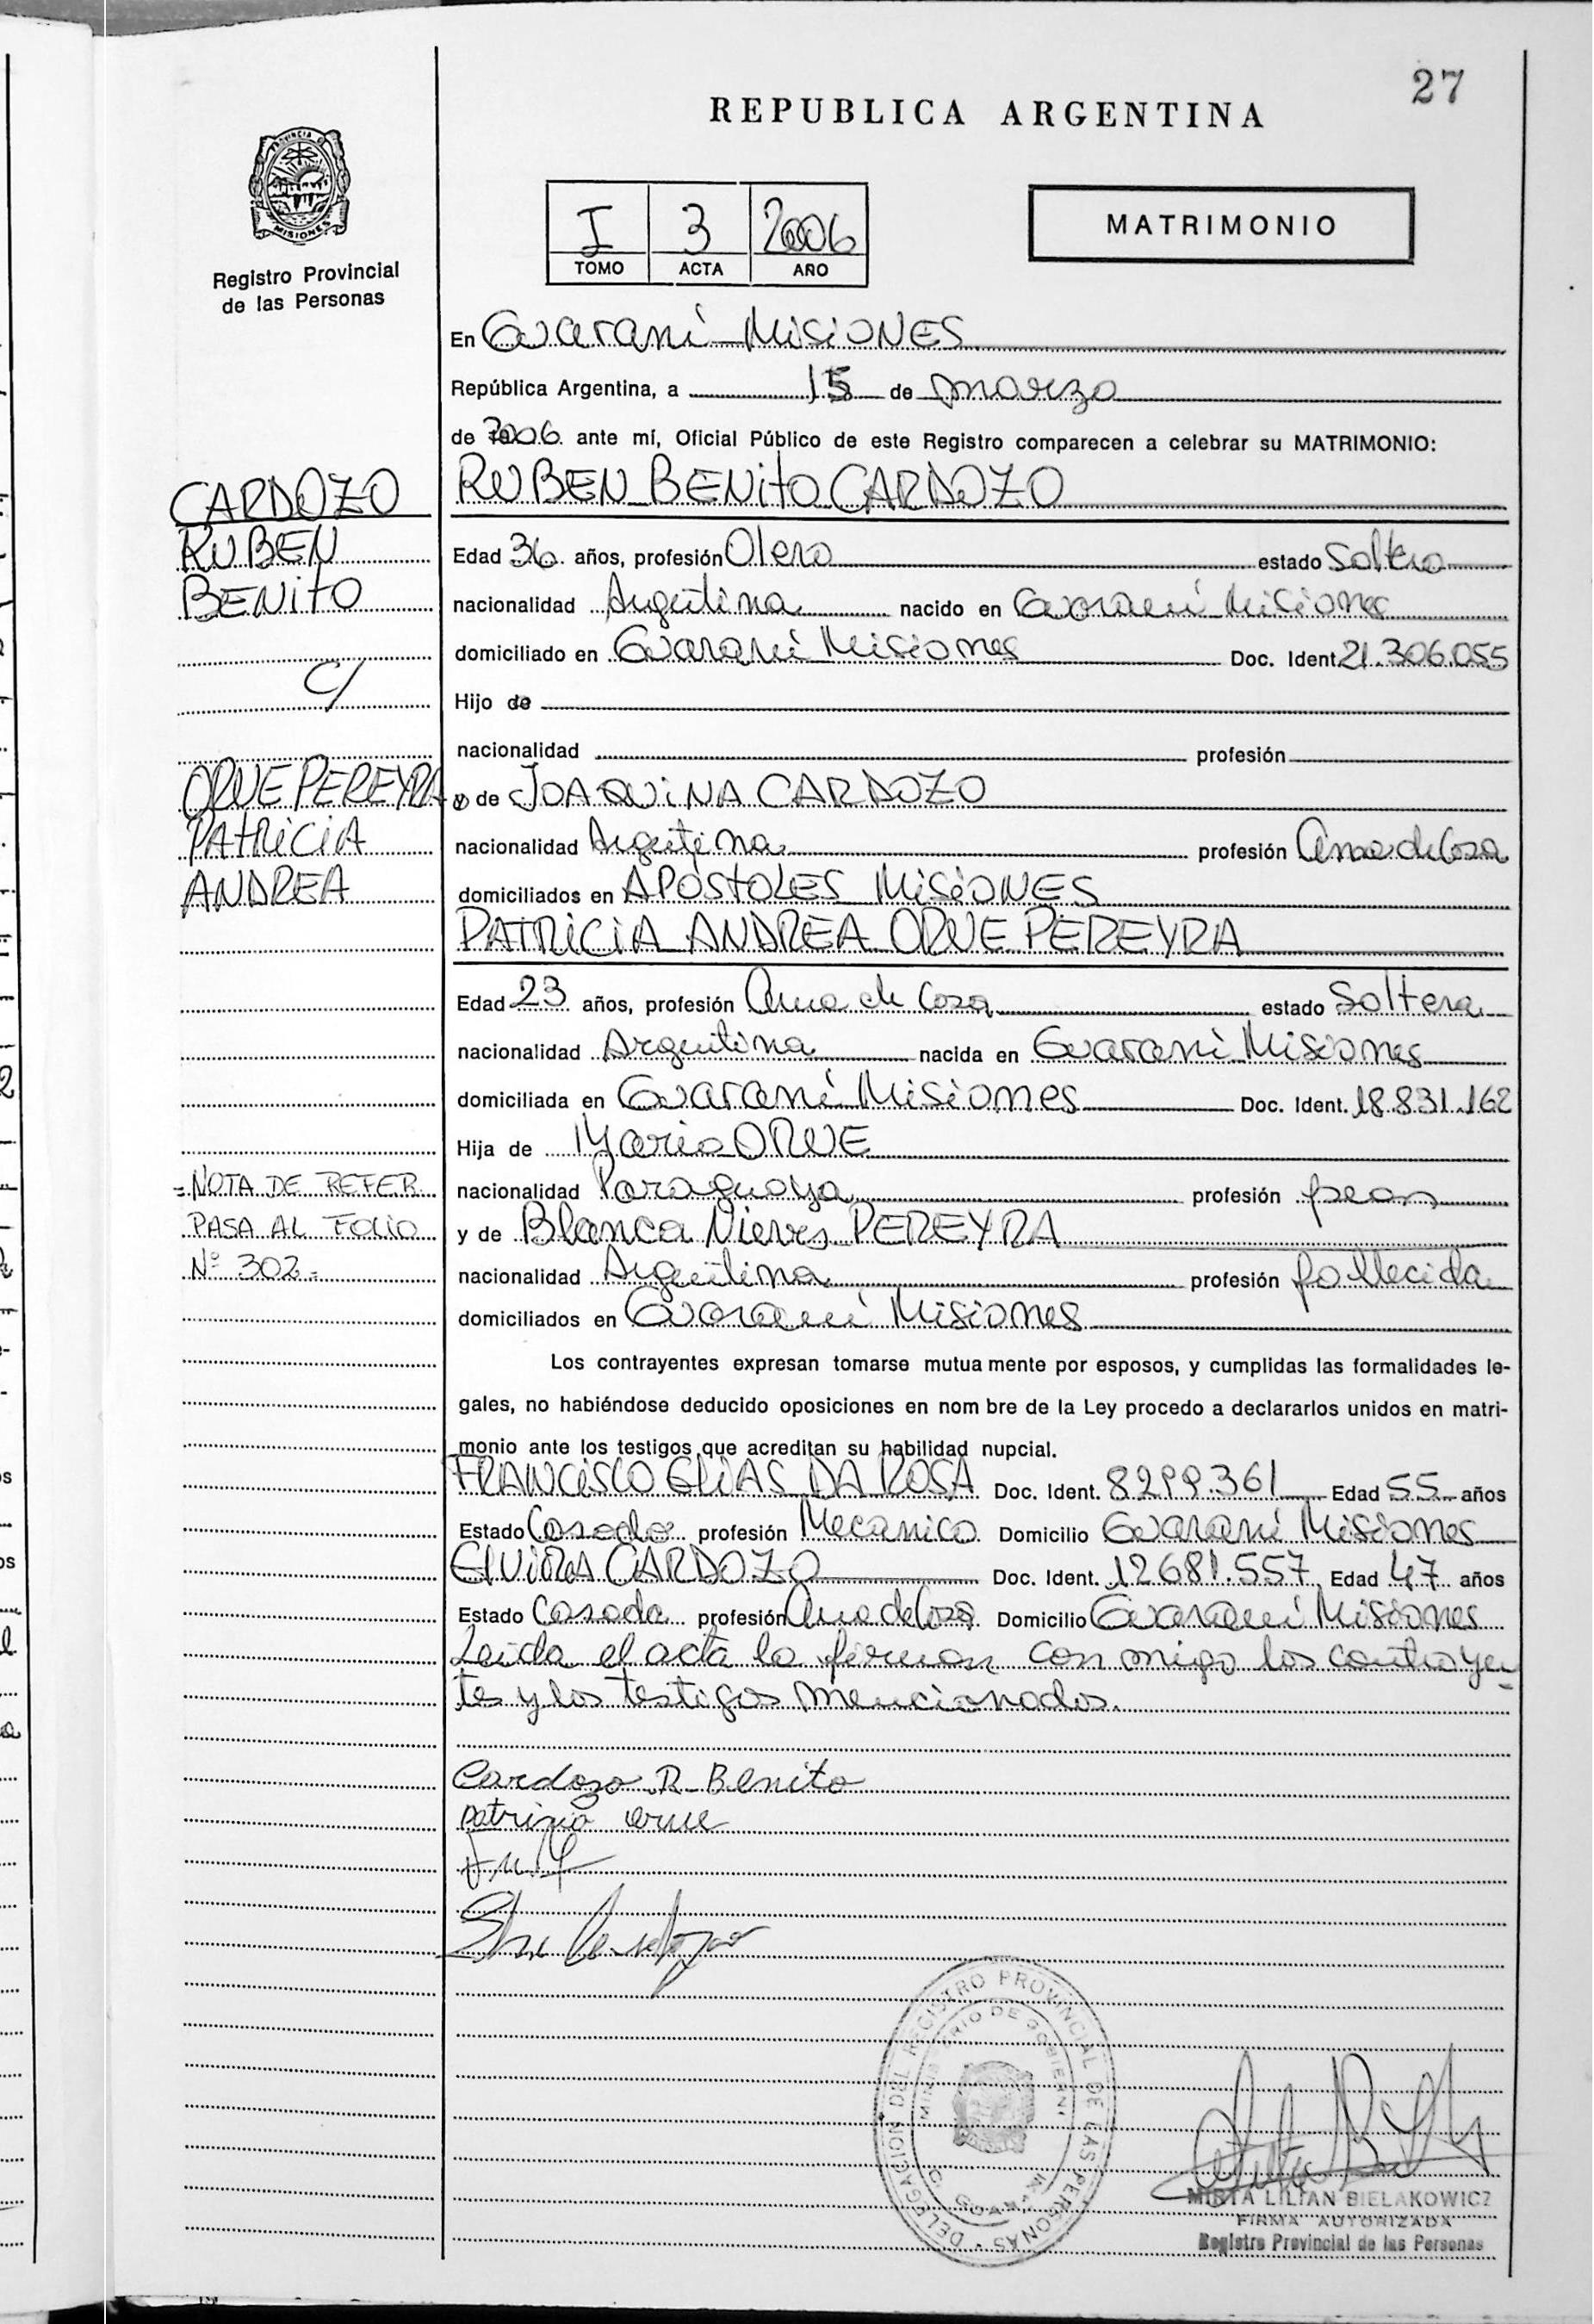 27
REPUBLICA ARGENTINA
PROVINCIA
MISIONES
Registro Provincial
de las Personas
I 3 2006
TOMO ACTA AÑO
MATRIMONIO
En Guaraní Misiones
República Argentina, a 15 de marzo
de 2006 ante mí, Oficial Público de este Registro comparecen a celebrar su MATRIMONIO:
RUBEN BENITO CARDOZO
Edad 36 años, profesión Olero estado Soltero
nacionalidad Argentina nacido en Guaraní Misiones
domiciliado en Guaraní Misiones Doc. Ident. 21.306.055
Hijo de
nacionalidad profesión
y de JOAQUINA CARDOZO
nacionalidad Argentina profesión Ama de Casa
domiciliados en APOSTOLES MISIONES
PATRICIA ANDREA ORUE PEREYRA
Edad 23 años, profesión Ama de Casa estado Soltera
nacionalidad Argentina nacida en Guaraní Misiones
domiciliada en Guaraní Misiones Doc. Ident. 18.831.162
Hija de Mario ORUE
nacionalidad Paraguaya profesión peon
y de Blanca Nieves PEREYRA
nacionalidad Argentina profesión fallecida
domiciliados en Guaraní Misiones
Los contrayentes expresan tomarse mutua mente por esposos, y cumplidas las formalidades le-
gales, no habiéndose deducido oposiciones en nom bre de la Ley procedo a declararlos unidos en matri-
monio ante los testigos que acreditan su habilidad nupcial.
FRANCISCO ELIAS DA ROSA Doc. Ident. 8299.361 Edad 55 años
Estado Casado profesión Mecanico Domicilio Guaraní Misiones
ELVIRA CARDOZO Doc. Ident. 12681.557 Edad 47 años
Estado Casada profesión Ama de Casa Domicilio Guaraní Misiones
Leida el acta la firman con migo los contrayen
tes y los testigos mencionados.
Cardozo R Benito
patrizia orue
CARDOZO
RUBEN
BENITO
c/
ORUE PEREYRA
PATRICIA
ANDREA
=NOTA DE REFER
PASA AL FOLIO
Nº 302=
DELEGACION DEL REGISTRO PROVINCIAL DE LAS PERSONAS
MINISTERIO DE GOBIERNO
MIRTA LILIAN BIELAKOWICZ
FIRMA AUTORIZADA
Registro Provincial de las Personas